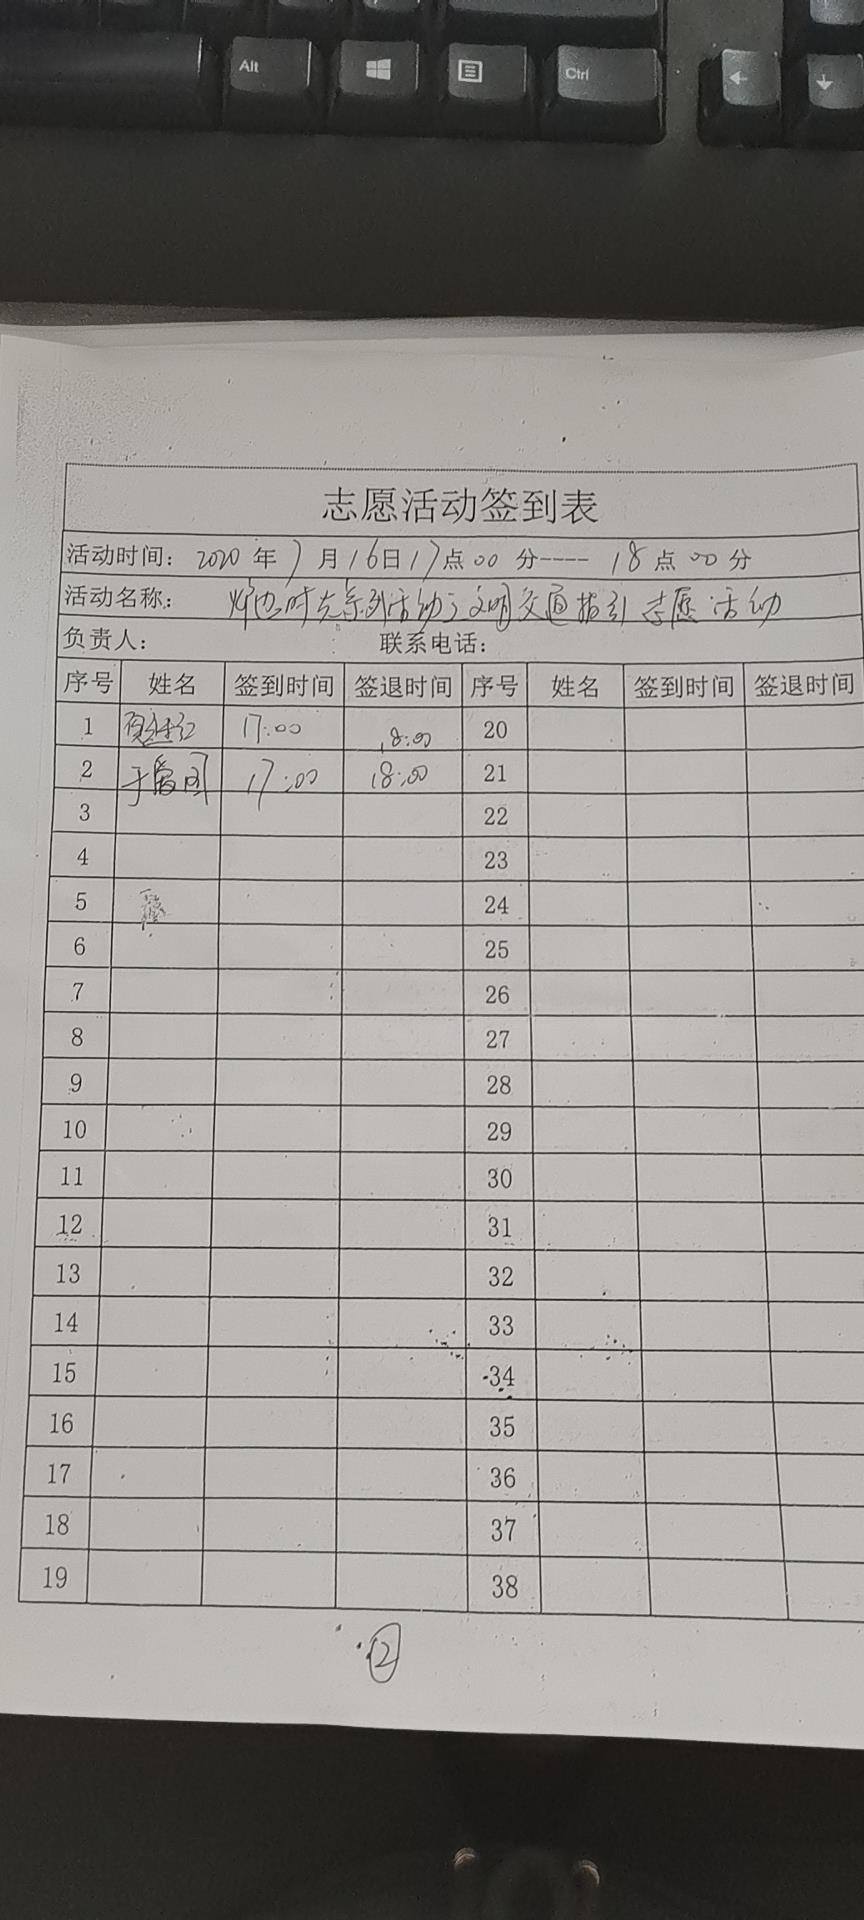 Alt
Ctrl
志愿活动签到表
活动时间：2020年7月16日17点00分----18点00分
活动名称：时光系列活动之文明交通指引志愿活动
负责人： 联系电话：
序号 姓名 签到时间 签退时间 序号 姓名 签到时间 签退时间
1 17:00 18:00 20
2 于 17:00 18:00 21
3 22
4 23
5 24
6 25
7 26
8 27
9 28
10 29
11 30
12 31
13 32
14 33
15 34
16 35
17 36
18 37
19 38
2